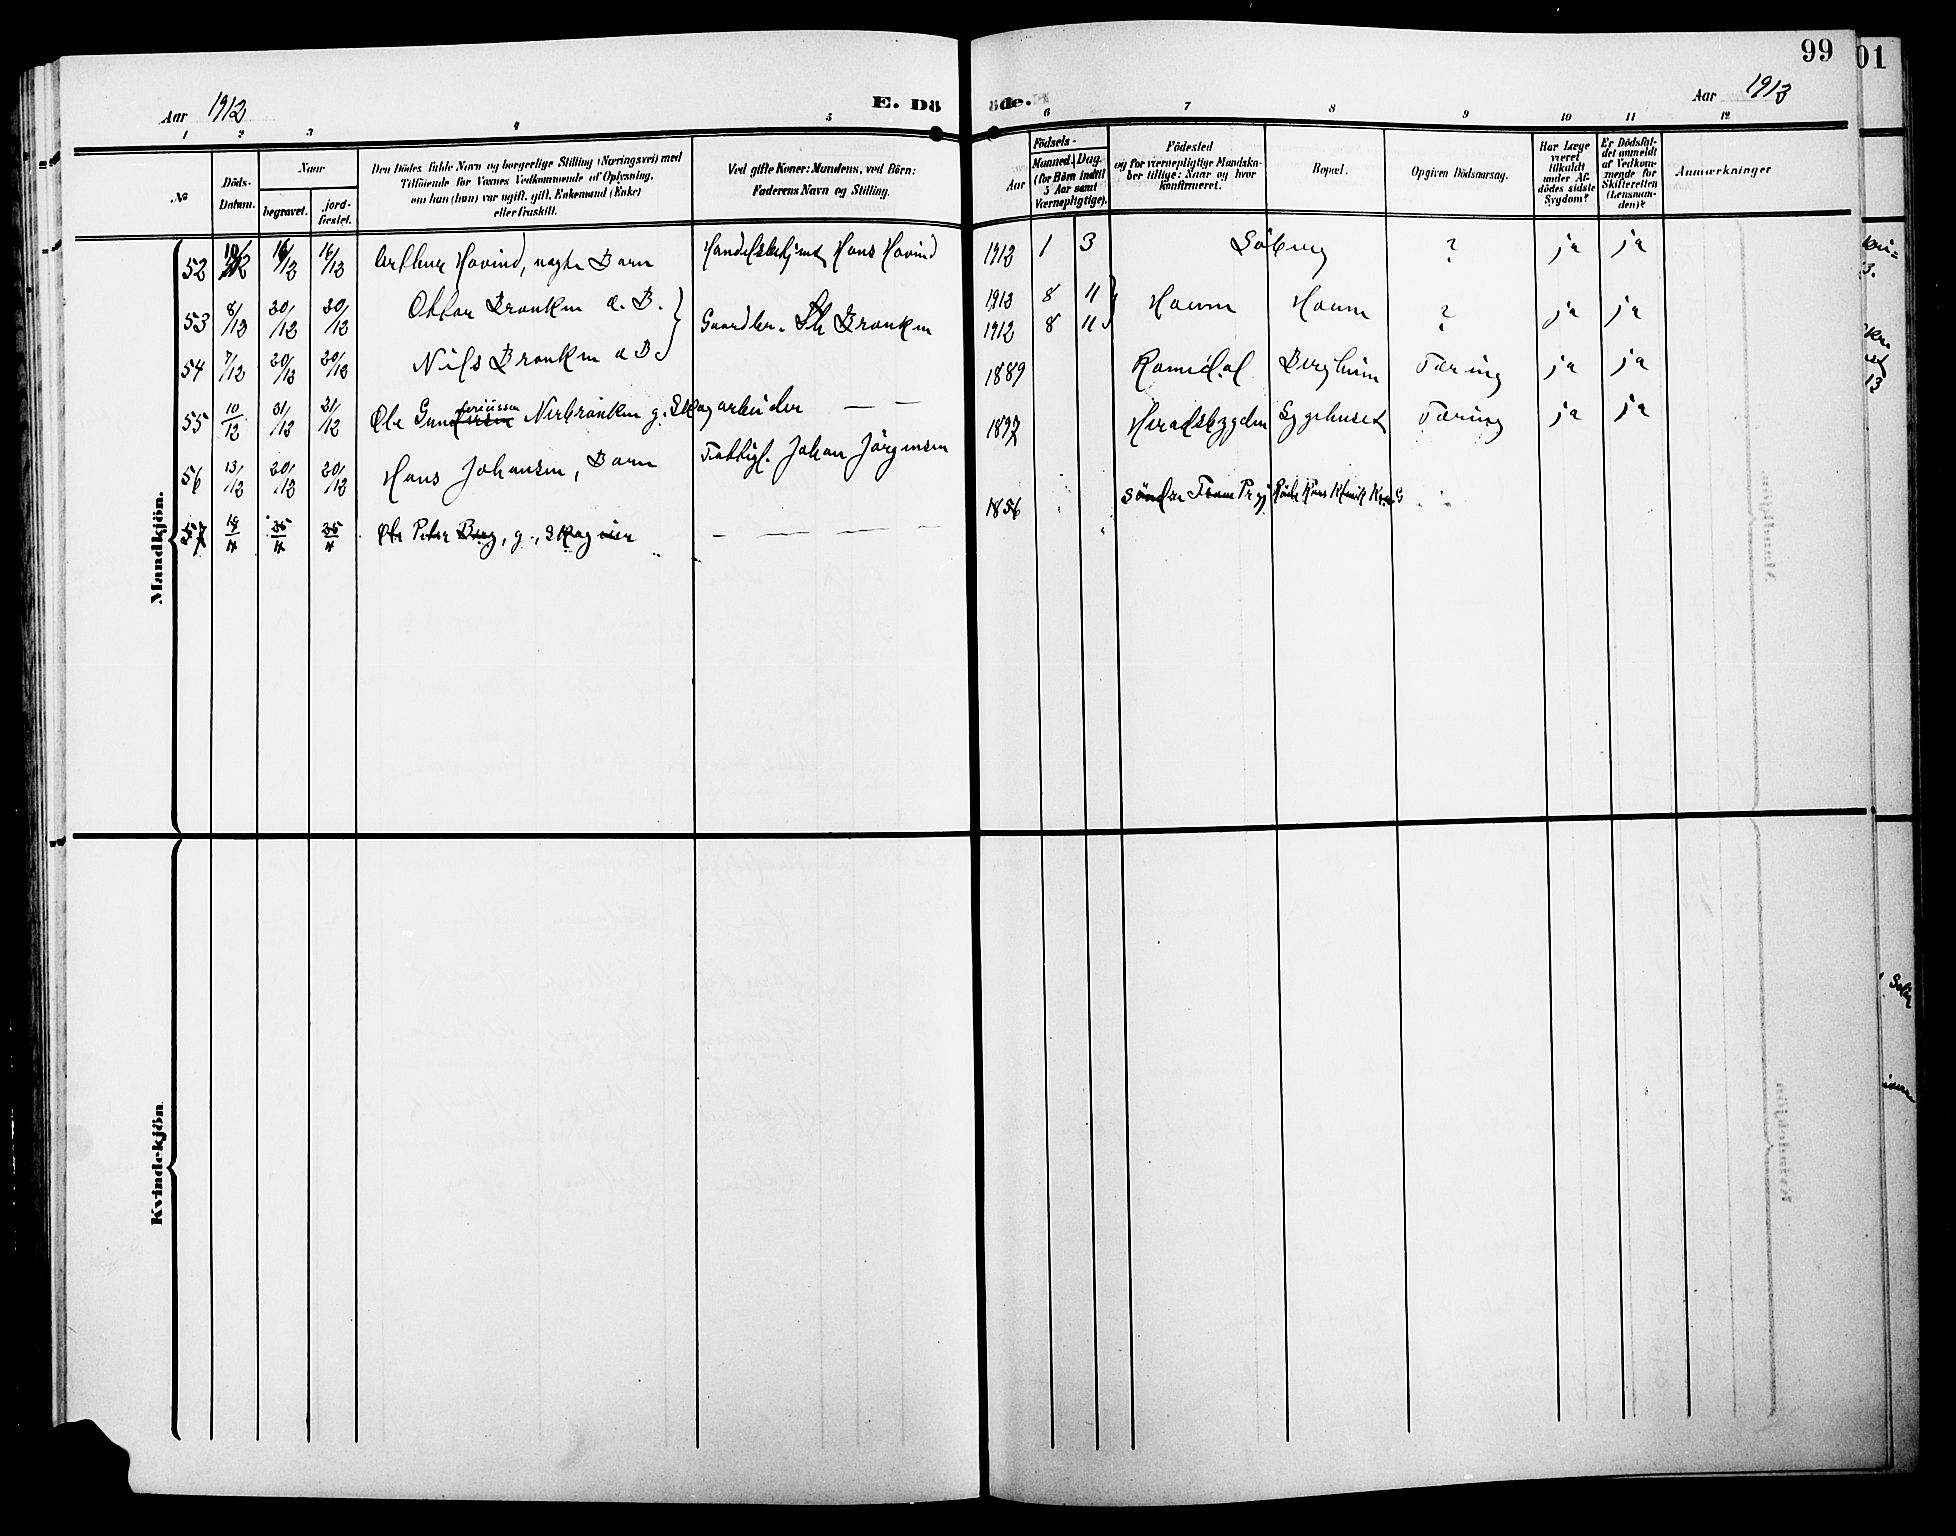 99
01
Aar 1912
E. Dö
öde.
Aar 1913
1 2 3 4 5 6 7 8 9 10 11 12
№
Döds-Datum.
Naar
begravet.
jord-fæstet.
Den Dödes fulde Navn og borgerlige Stilling (Næringsvei) med
Tilföiende for Voxnes Vedkommende af Oplysning,
om han (hun) var ugift, gift, Enkemand (Enke)
eller fraskilt.
Ved gifte Koner: Mandens, ved Börn:
Faderens Navn og Stilling.
Födsels-
Aar
Maaned. Dag.
(for Börn indtil
5 Aar samt
Værnepligtige).
Födested
og for værnepligtige Mandska-
ber tillige: Naar og hvor
konfirmeret.
Bopæl.
Opgiven Dödsaarsag.
Har Læge
været
tilkaldt
under Af-
dödes sidste
Sygdom?
Er Dödsfal-
det anmeldt
af Vedkom-
mende for
Skifteretten
(Lensman-
den)?
Anmærkninger
Mandkjön.
52 16/12 16/12 Arthur Hovind, nogle Barn Hans Hovind 1912 1 3 Söberg ? ja ja
53 8/12 20/12 20/12 Ottar Bronken d. B. Gaardbr. Bronken 1913 8 11 Houm Houm ? ja ja
54 7/12 20/12 20/12 Nils Bronken d B. 1912 8 11
55 10/12 21/12 21/12 Ole Gundersen Nerbronken g. Skogarbeider — — 1889 Romedal Bergheim Tæring ja ja
56 13/12 20/12 20/12 Hans Johansen, Barn Johan Jörgensen 1897 Heradsbygden Sygehuset Tæring ja ja
57 19/4 25/4 25/4 Ole Peter Berg, g., Skogeier — — — — 1856 Söndre
Kvindekjön